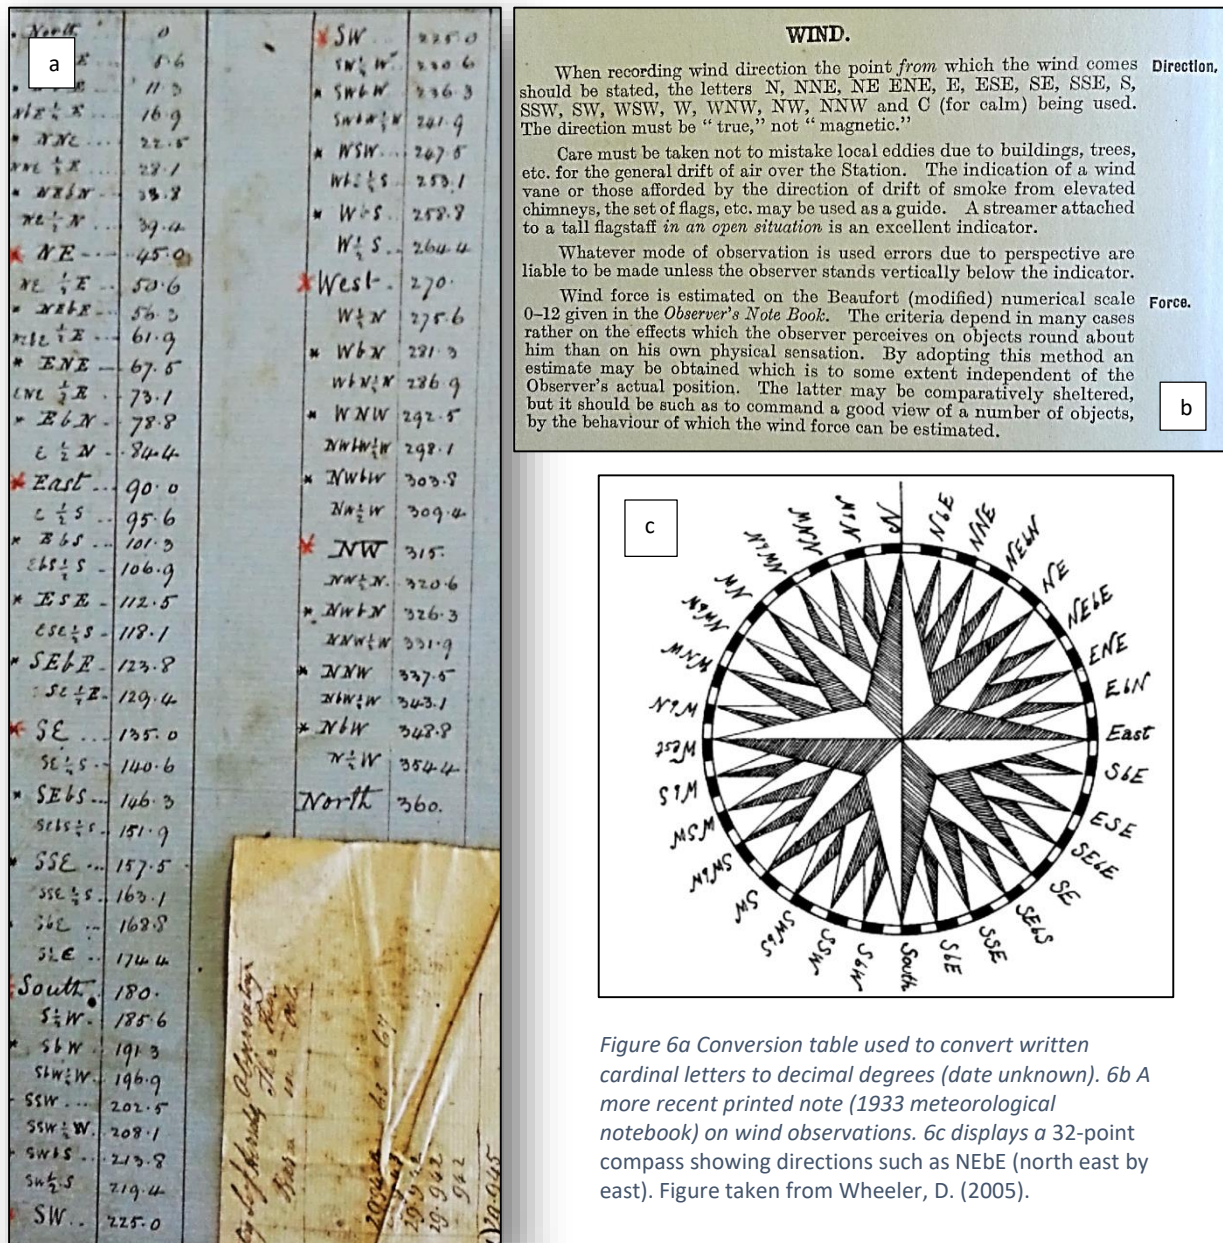 a
North 0
5.6
11.3
NbE ½ E 16.9
* NNE ... 22.5
NNE ½ E 28.1
* NEbN 33.8
NE ½ N 39.4
* NE --- 45.0
NE ½ E 50.6
* NEbE 56.3
NEbE ½ E 61.9
* ENE ... 67.5
ENE ½ E 73.1
* EbN - 78.8
E ½ N - 84.4
* East ... 90.0
E ½ S ... 95.6
* EbS ... 101.3
EbS ½ S - 106.9
* ESE - 112.5
ESE ½ S - 118.1
* SEbE - 123.8
SE ½ E - 129.4
* SE ... 135.0
SE ½ S -- 140.6
* SEbS ... 146.3
SEbS ½ S - 151.9
* SSE ... 157.5
SSE ½ S - 163.1
SbE ... 168.8
174.4
South. 180.
S ½ W - 185.6
* SbW 191.3
SbW ½ W 196.9
SSW ... 202.5
SSW ½ W. 208.1
SWbS - 213.8
SW ½ S 219.4
SW .. 225.0
* SW ... 225.0
SW ½ W 230.6
* SWbW 236.3
SWbW ½ W 241.9
* WSW ... 247.5
WbS ½ S 253.1
* WbS 258.8
W ½ S .. 264.4
* West - 270.
W ½ N 275.6
* WbN 281.3
WbN ½ N 286.9
* WNW 292.5
NWbW ½ W 298.1
* NWbW 303.8
NW ½ W 309.4
* NW 315.
NW ½ N. 320.6
* NWbN 326.3
NNW ½ W 331.9
* NNW 337.5
NbW ½ W 343.1
* NbW 348.8
N ½ W 354.4
North 360.
29.942
942
29.945
WIND.
When recording wind direction the point from which the wind comes Direction.
should be stated, the letters N, NNE, NE ENE, E, ESE, SE, SSE, S,
SSW, SW, WSW, W, WNW, NW, NNW and C (for calm) being used.
The direction must be “ true,” not “ magnetic.”
Care must be taken not to mistake local eddies due to buildings, trees,
etc. for the general drift of air over the Station. The indication of a wind
vane or those afforded by the direction of drift of smoke from elevated
chimneys, the set of flags, etc. may be used as a guide. A streamer attached
to a tall flagstaff in an open situation is an excellent indicator.
Whatever mode of observation is used errors due to perspective are
liable to be made unless the observer stands vertically below the indicator.
Wind force is estimated on the Beaufort (modified) numerical scale Force.
0–12 given in the Observer's Note Book. The criteria depend in many cases
rather on the effects which the observer perceives on objects round about
him than on his own physical sensation. By adopting this method an
estimate may be obtained which is to some extent independent of the
Observer's actual position. The latter may be comparatively sheltered,
but it should be such as to command a good view of a number of objects,
by the behaviour of which the wind force can be estimated.
b
c
N
NbE
NNE
NEbN
NE
NEbE
ENE
EbN
East
SbE
ESE
SEbE
SE
SEbS
SSE
SbE
South
SbW
SSW
SWbS
SW
SWbW
WSW
WbS
West
WbN
WNW
NWbW
NW
NWbN
NNW
Figure 6a Conversion table used to convert written
cardinal letters to decimal degrees (date unknown). 6b A
more recent printed note (1933 meteorological
notebook) on wind observations. 6c displays a 32-point
compass showing directions such as NEbE (north east by
east). Figure taken from Wheeler, D. (2005).